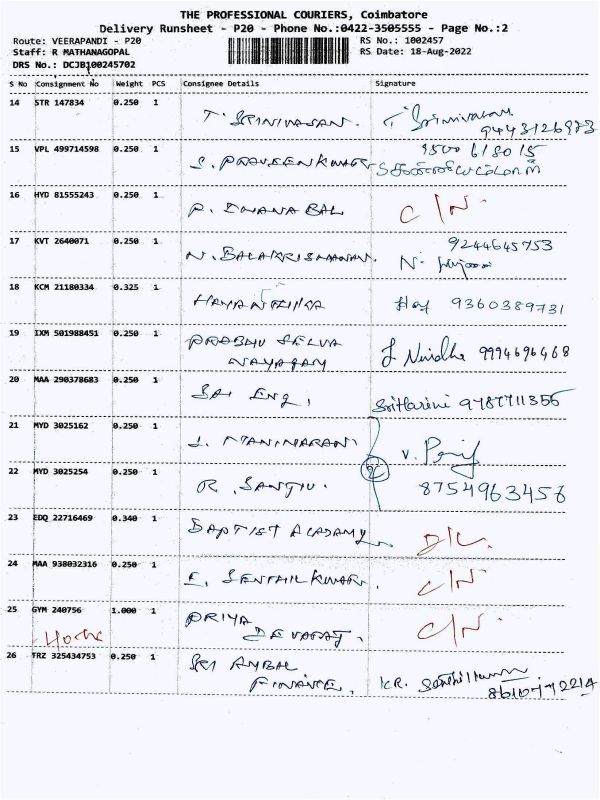 THE PROFESSIONAL COURIERS, Coimbatore
Delivery Runsheet - P20 - Phone No.:0422-3505555 - Page No.:2
Route: VEERAPANDI - P20 RS No.: 1002457
Staff: R MATHANAGOPAL RS Date: 18-Aug-2022
DRS No.: DCJB100245702
S No Consignment No Weight PCS Consignee Details Signature
14 STR 147834 0.250 1 T. SRINIVASAN. T. Srinivasan
9443126973
15 VPL 499714598 0.250 1 S. PRAVEENKUMAR 9500618015
16 HYD 81555243 0.250 1 P. DHANABAL C/N.
17 KVT 2640071 0.250 1 N. BALAKRISHNAN. 9244645753
N.
18 KCM 21180334 0.325 1 9360389731
19 IXM 501988451 0.250 1 PRABHU SELVA
NAYAGAM J Nividha 9994696468
20 MAA 290378683 0.250 1 SAI ENG, SriHarini 9787711356
21 MYD 3025162 0.250 1 J. MANIMARAN V.
22 MYD 3025254 0.250 1 R. SANJIV. 8754963456
23 EDQ 22716469 0.340 1 BAPTIST ACADAMY D/L.
24 MAA 938032316 0.250 1 E. SENTHILKUMAR. C/N
25 GYM 240756 1.000 1 PRIYA
DEVARAJ. C/N.
26 TRZ 325434753 0.250 1 SRI AMBAL
FINANCE. KR.